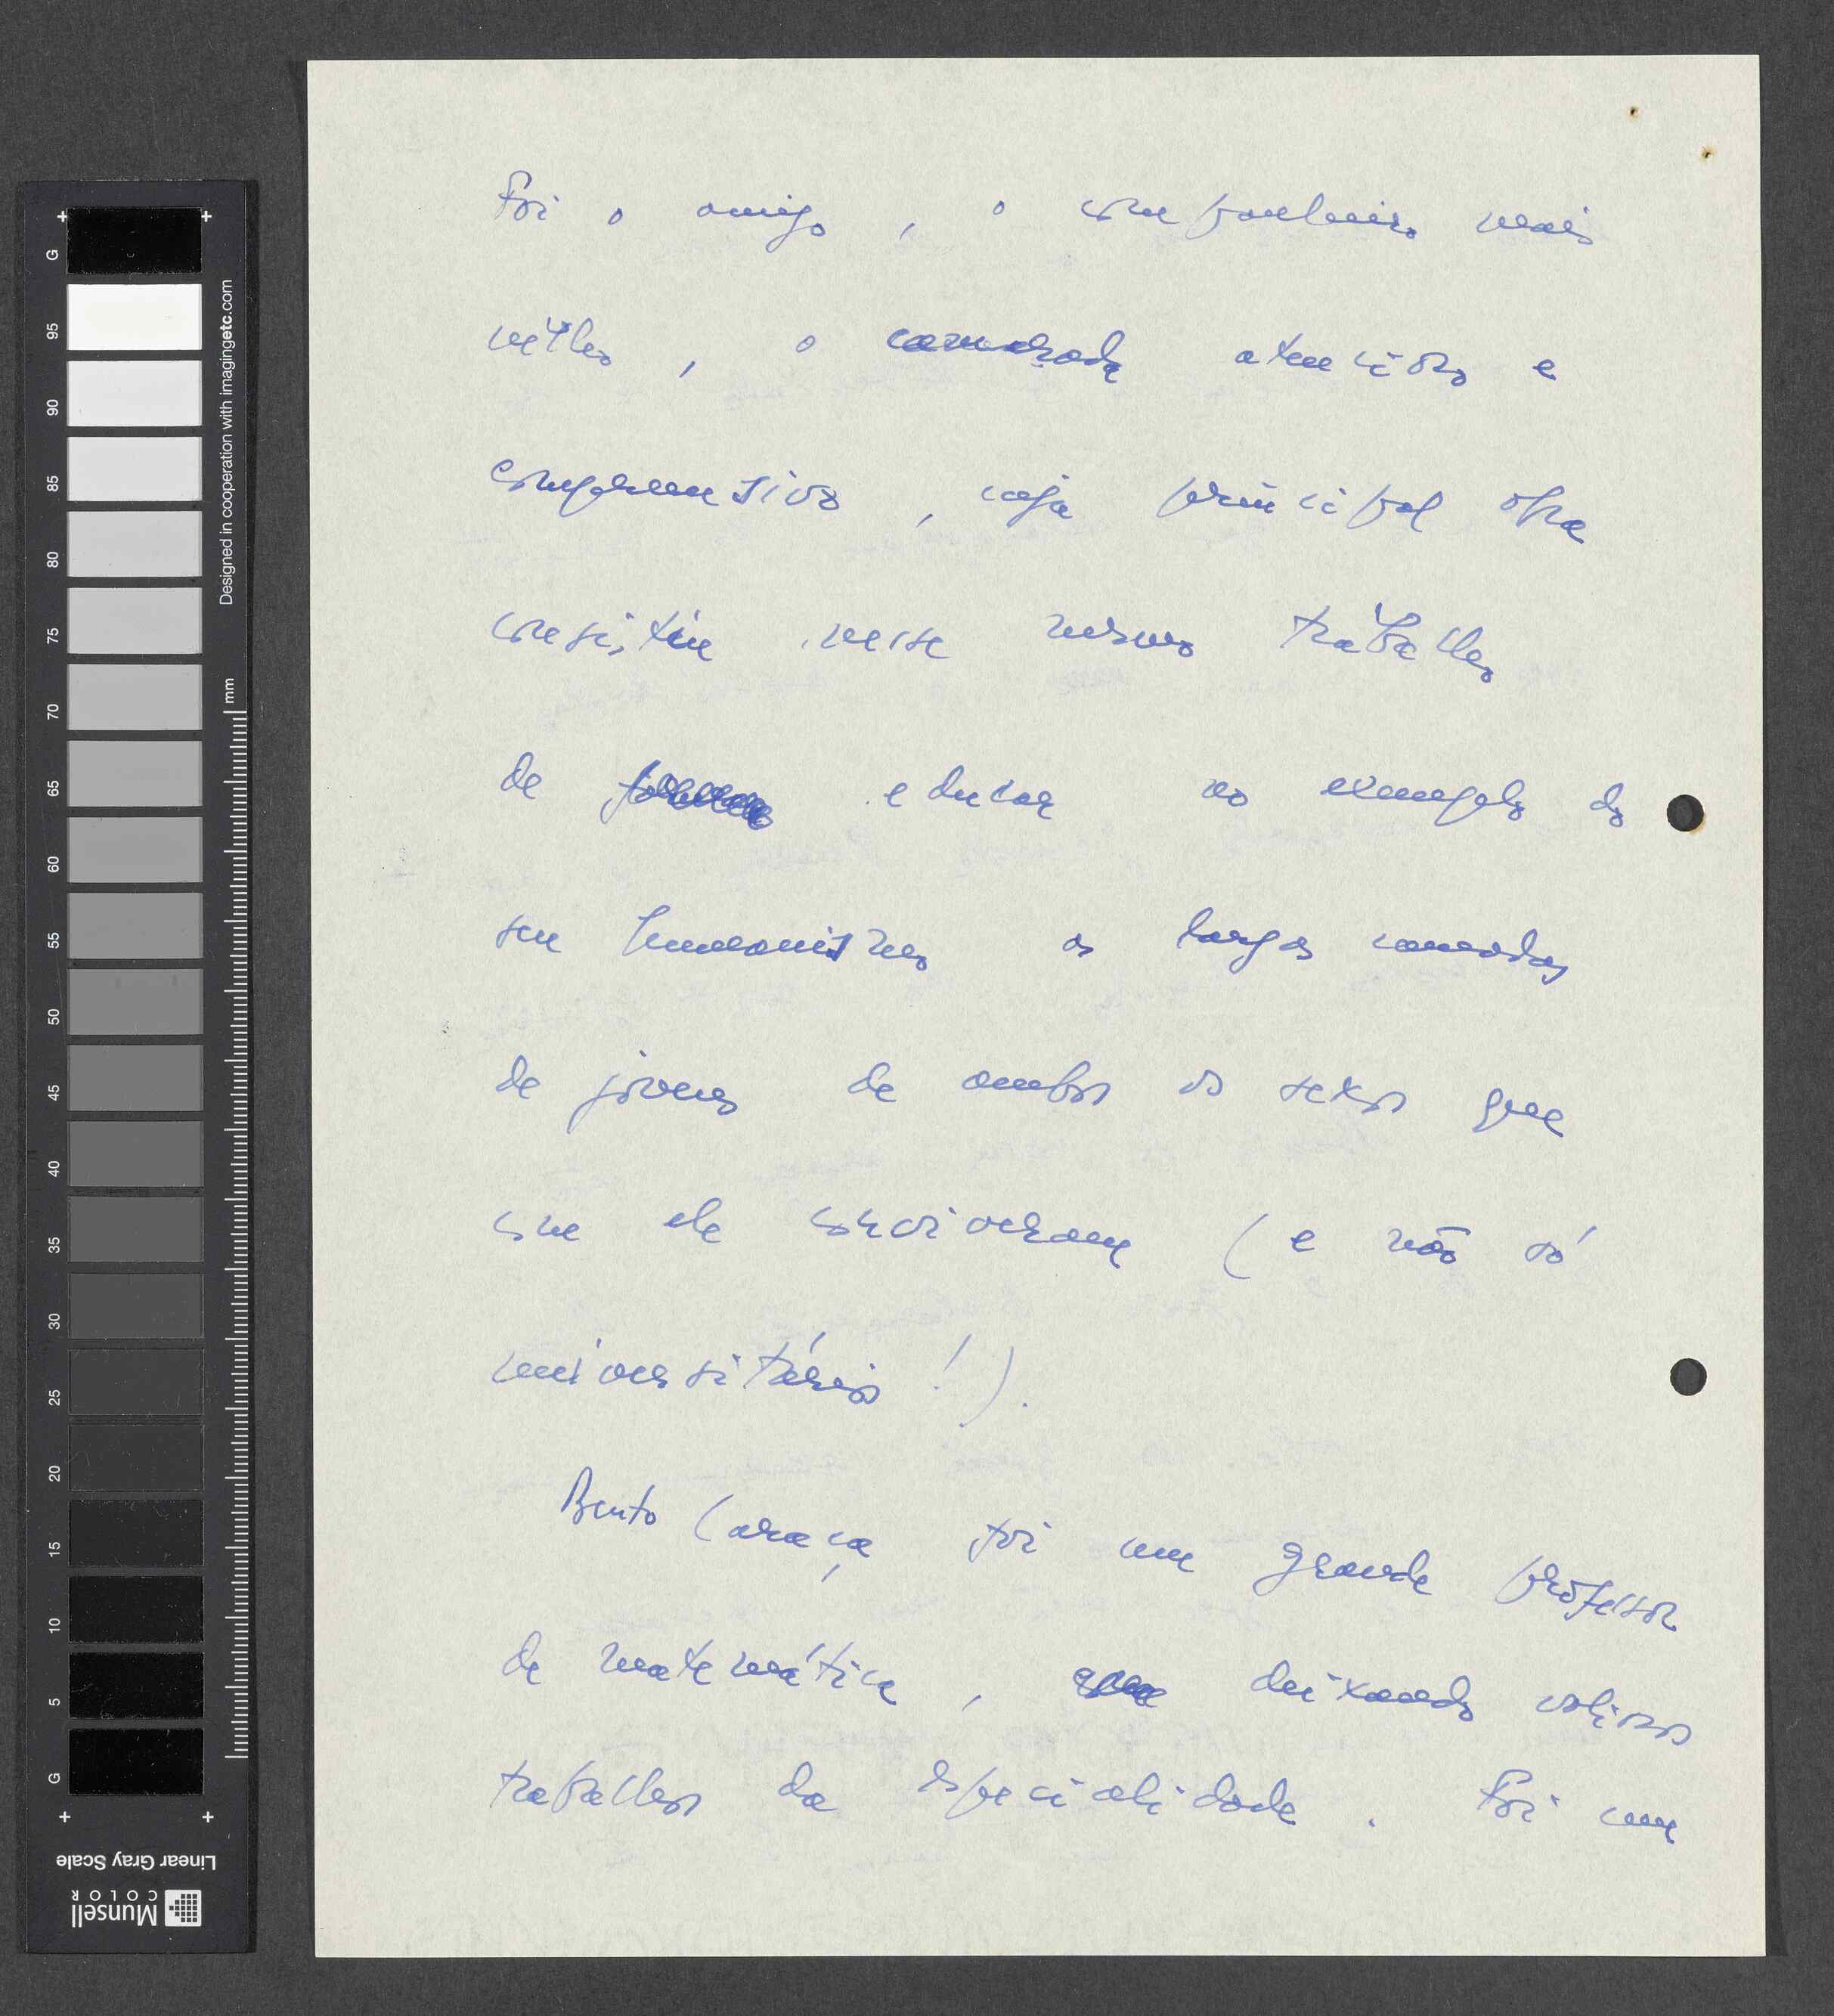 Foi o amigo, o companheiro mais
velho, o camarada atencioso e
compreensivo, cuja principal obra
consistiu nesse mesmo trabalho
de educar no exemplo do
seu humanismo as largas camadas
de jovens de ambos os sexos que
com ele conviveram (e não só
universitários!).
Bento Caraça foi um grande professor
de matemática, deixando valiosos
trabalhos da especialidade. Foi um
G
95
90
85
80
75
70
65
60
55
50
45
40
35
30
25
20
15
10
5
G
mm
Designed in cooperation with imagingetc.com
Linear Gray Scale
Munsell
COLOR